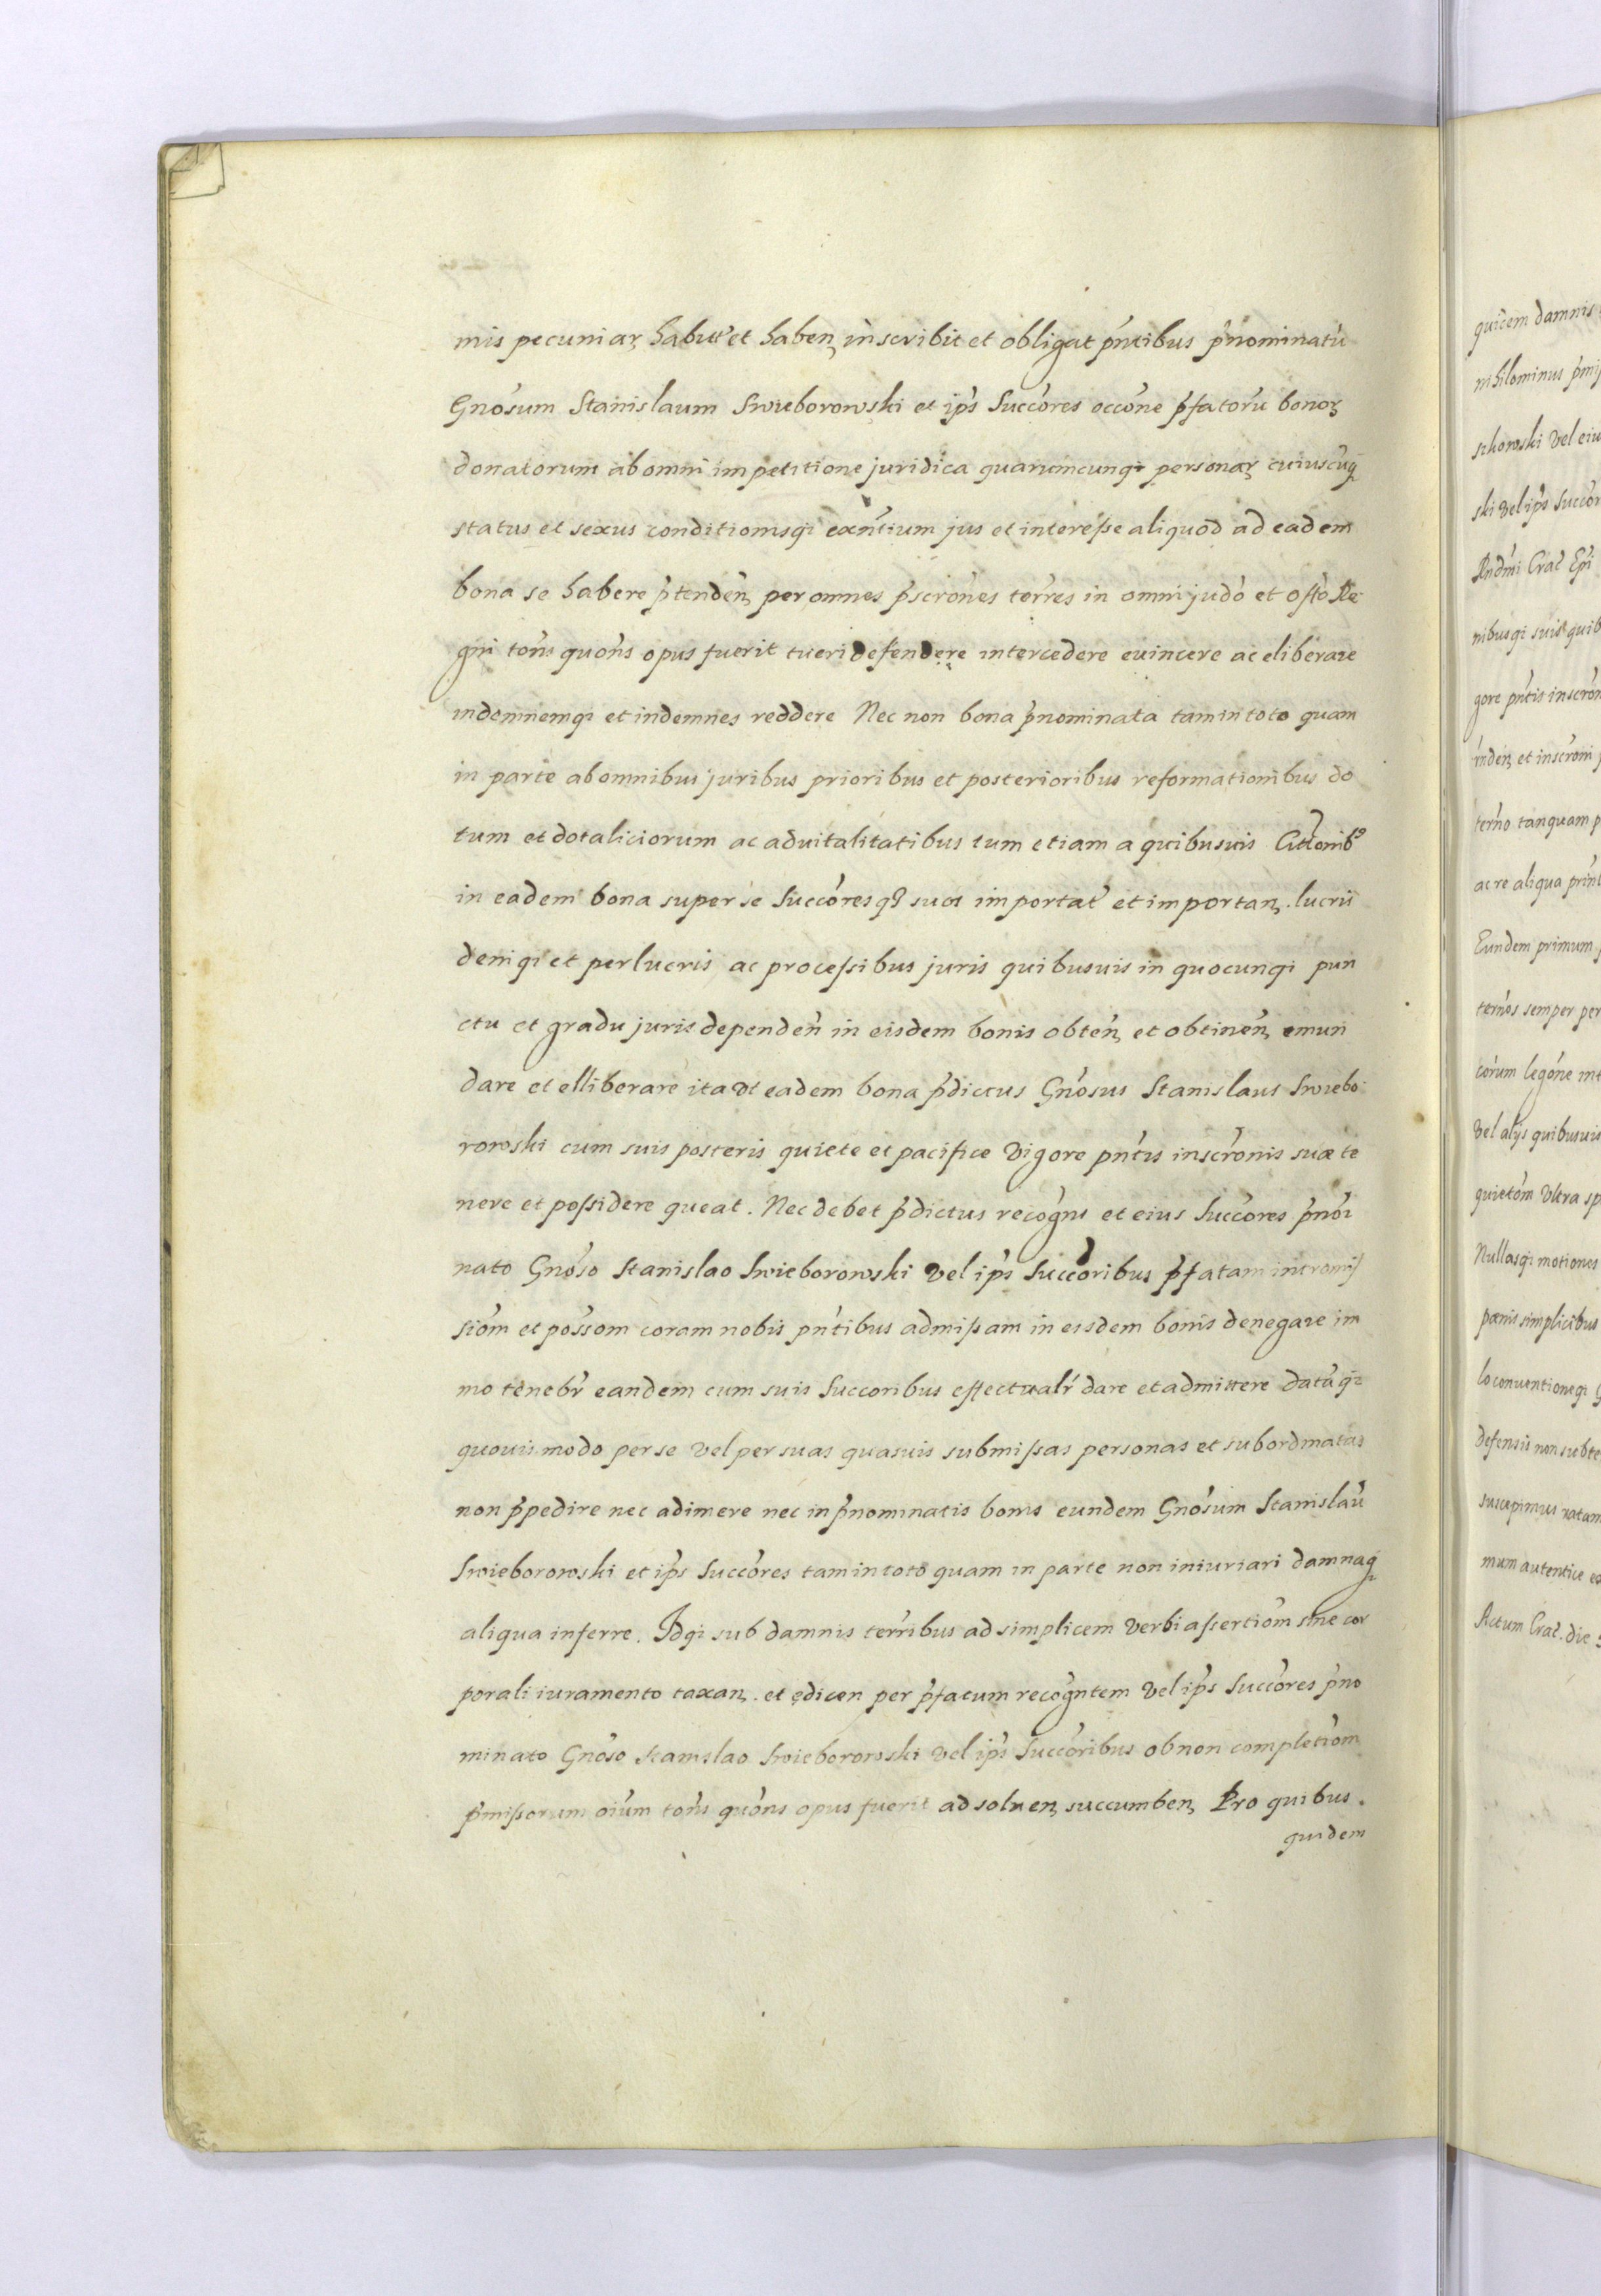 mis pecuniar habit et haben inscribit et obligat pntibus pnominatu
Gnosum Stanislaum Swieborowski et ips Succores occone pfatoru bonor
donatorum ab omni impetitione juridica quarumcunq personar cuiuscuq
status et sexus conditionisq exntium jus et interesse aliquod ad eadem
bona se habere ptenden per omnes pscrones terres in omni judo et offo Re
gni tons quons opus fuerit tueri defendere intercedere euincere ac eliberare
indemnemq et indemnes reddere Nec non bona pnominata tam in toto quam
in parte ab omnibus juribus prioribus et posterioribus reformationibus do
tum et dotaliciorum ac aduitalitatibus tum etiam a quibusuis
in eadem bona super se Succores q suos importat et importan. lucris
deniq et perlucris ac processibus juris quibusuis in quocunq pun
ctu et gradu juris dependen in eisdem bonis obten et obtinen emun
dare et elliberare ita vt eadem bona pdictus Gnosus Stanislaus Swiebo
rowski cum suis posteris quiete et pacifice vigore pntis inscronis suæ te
nere et possidere queat. Nec debet pdictus recogns et eius Succores pnoi
nato Gnoso Stanislao Swieborowski vel ips Succoribus pfatam intromis
siom et possom coram nobis pntibus admissam in eisdem bonis denegare im
mo tenebr eandem cum suis Succoribus effectualr dare et admittere datuq
quouis modo per se vel per suas quasuis submissas personas et subordinatas
non ppedire nec adimere nec in pnominatis bonis eundem Gnosum Stanislau
Swieborowski et ips Succores tam in toto quam in parte non iniuriari damnaq
aliqua inferre. Idq sub damnis terribus ad simplicem verbi assertiom sine cor
porali iuramento taxan. et edicen per pfatum recogntem vel ips Succores pno
minato Gnoso Stanislao Swieborowski vel ips Succoribus ob non completiom
pmissorum oium tons quons opus fuerit ad soluen succumben Pro quibus.
quidem
quidem damnis
nihilominus pmis
szkowski vel eiu
ski vel ips Succor
Rndmi Crac Epi
nibusq suis quib
gore pntis inscron
inden et inscroni
terno tanquam p
ac re aliqua prin
Eundem primum
ternos semper per
corum legone int
vel alijs quibusuis
quietom vltra sp
Nullasq motiones
pœnis simplicibus
lo conuentioneq G
defensis non subte
suscepimus ratam
mum autentice ea
Actum Crac. die